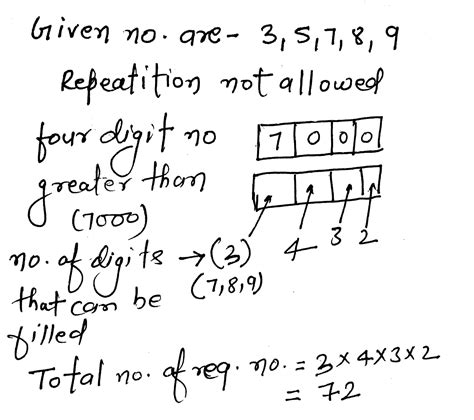 Given no. are - 3, 5, 7, 8, 9
Repeatition not allowed
four digit no
7 0 0 0
greater than
(7000)
no. of digits → (3) 4 3 2
that can be (7,8,9)
filled
Total no. of req. no. = 3×4×3×2
= 72